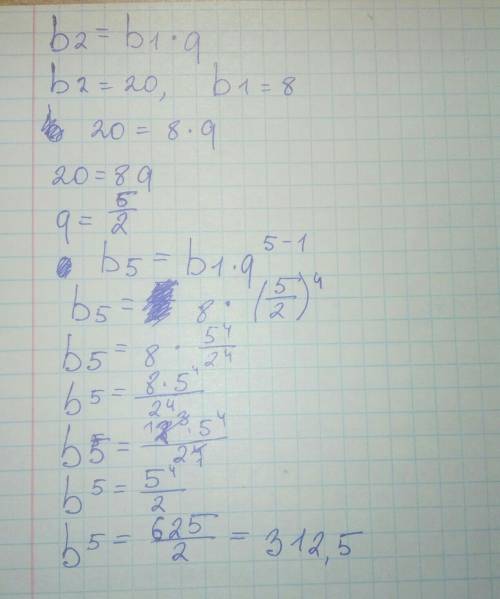 b2 = b1 · q
b2 = 20, b1 = 8
20 = 8 · q
20 = 8q
q = 5/2
b5 = b1 · q^5-1
b5 = 8 · (5/2)^4
b5 = 8 · 5^4/2^4
b5 = 8 · 5^4/2^4
b5 = 2^3 · 5^4/2^4 1
b5 = 5^4/2
b5 = 625/2 = 312,5